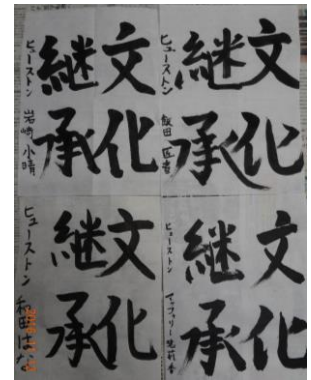 文化
継承
ヒューストン 飯田
文化
継承
ヒューストン 岩崎 小晴
文化
継承
ヒューストン
文化
継承
ヒューストン 和田 はな